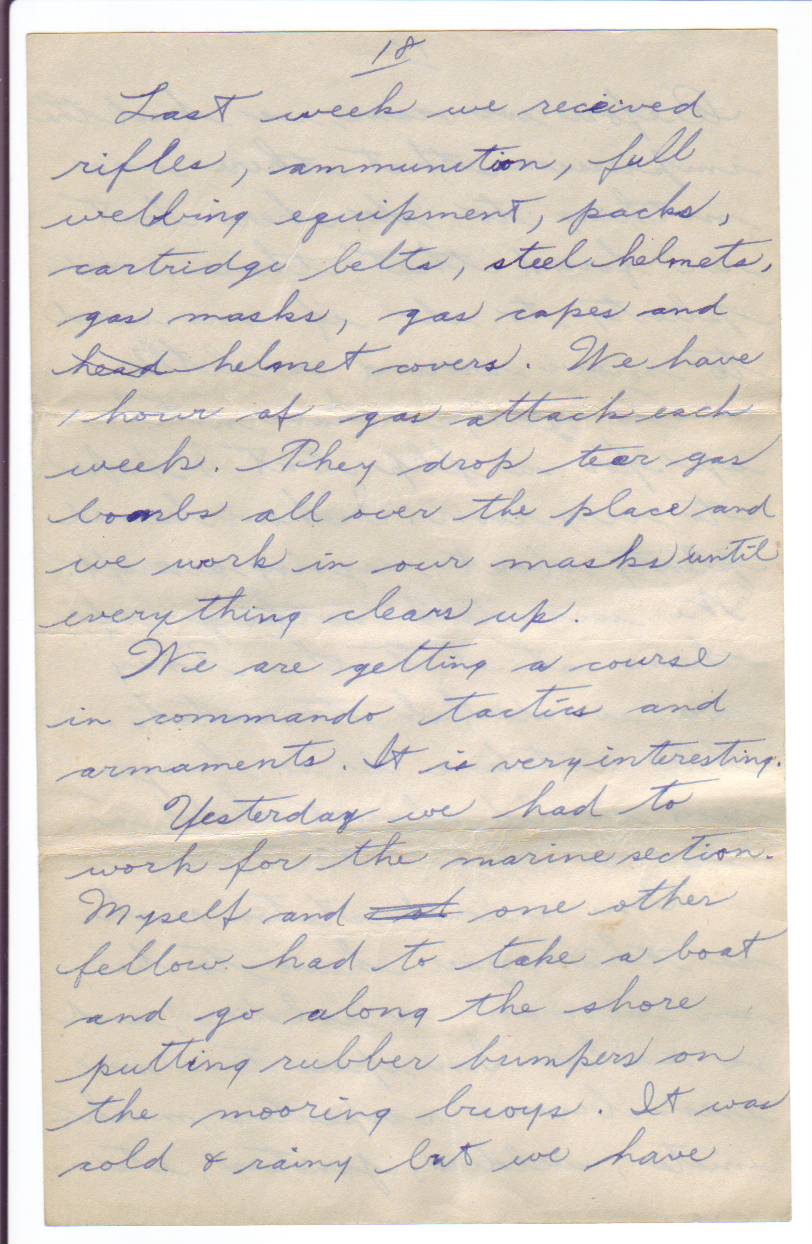 18
Last week we received
rifles, ammunition, full
webbing equipment, packs,
cartridge belts, steel helmets,
gas masks, gas capes and
head helmet covers. We have
1 hour of gas attack each
week. They drop tear gas
bombs all over the place and
we work in our masks until
everything clears up.
We are getting a course
in commando tactics and
armaments. It is very interesting.
Yesterday we had to
work for the marine section.
Myself and one other
fellow had to take a boat
and go along the shore
putting rubber bumpers on
the mooring buoys. It was
cold & rainy but we have